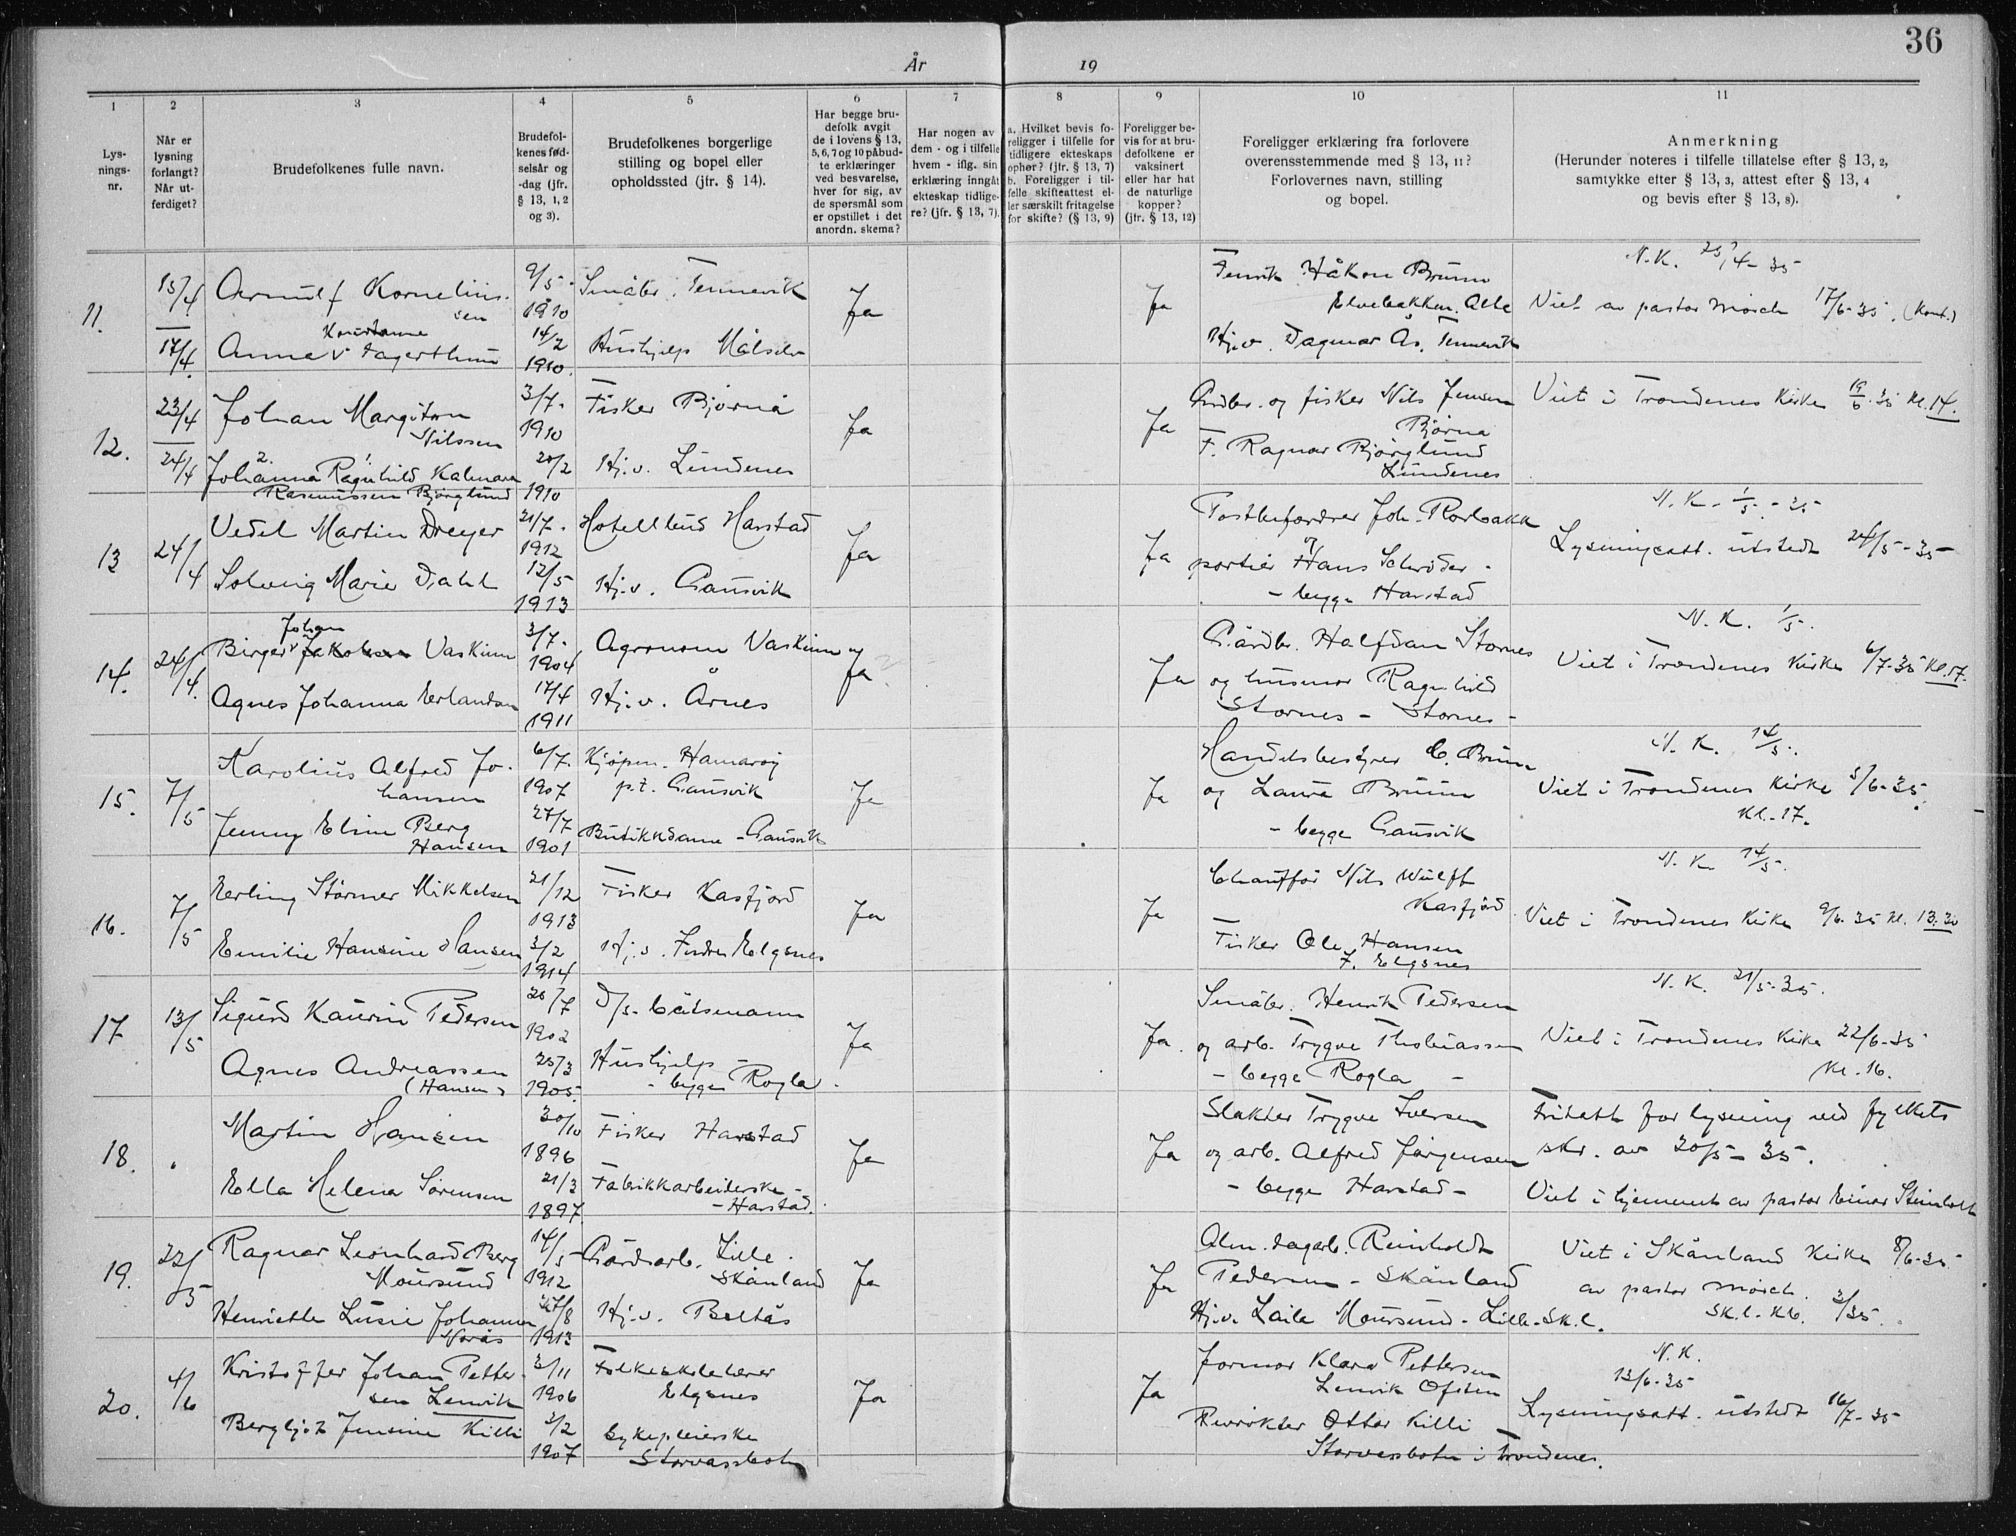 36
År 19
1 2 3 4 5 6 7 8 9 10 11
Lys-
nings-
nr.
Når er
lysning
forlangt?
Når ut-
ferdiget?
Brudefolkenes fulle navn.
Brudefol-
kenes fød-
selsår og
-dag (jfr.
§ 13, 1, 2
og 3).
Brudefolkenes borgerlige
stilling og bopel eller
opholdssted (jfr. § 14).
Har begge bru-
defolk avgit
de i lovens § 13,
5, 6, 7 og 10 påbud-
te erklæringer
ved besvarelse,
hver for sig, av
de spørsmål som
er opstillet i det
anordn. skema?
Har nogen av
dem - og i tilfelle
hvem - iflg. sin
erklæring inngåt
ekteskap tidlige-
re? (jfr. § 13, 7).
a. Hvilket bevis fo-
religger i tilfelle for
tidligere ekteskaps
ophør? (jfr. § 13, 7)
b. Foreligger i til-
felle skifteattest el-
ler særskilt fritagelse
for skifte? (§ 13, 9)
Foreligger be-
vis for at bru-
defolkene er
vaksinert
eller har hat
de naturlige
kopper?
(jfr. § 13, 12)
Foreligger erklæring fra forlovere
overensstemmende med § 13, 11?
Forlovernes navn, stilling
og bopel.
Anmerkning
(Herunder noteres i tilfelle tillatelse efter § 13, 2,
samtykke efter § 13, 3, attest efter § 13, 4
og bevis efter § 13, 8).
11.
15/4
17/4.
Arnulf Kornelius-
sen
Konstanse
Anna v Fagertun
9/5-
1910
14/2
1910.
Småbr. Tennevik
Hushjelp Målselv
Ja
Ja
Fenrik Håkon Bruun
Elvebakken. Alta
Hj.v. Dagmar Ås, Tennevik
N.K. 25/4-35
Viet av pastor Mosch 17/6-35. (Kont.)
12.
23/4
24/4
Johan Margiton
Nilssen
2. 1
Johanna Ragnhild Kalmara
Rasmussen Bjørglund
3/7-
1910
20/2
1910
Fisker Bjørnå
Hj.v. Lundenes
Ja
Ja
Gårdbr. og fisker Nils Jensen
Bjørnå
F. Ragnar Bjørglund
Lundenes
Viet i Trondenes Kirke 19/6.35 Kl. 14.
13
24/4
Vedel Martin Dreyer
Solveig Marie Dahl
21/7-
1912
12/5
1913
Hotellbud Harstad
Hj.v. Gausvik
Ja
Ja
Postbefordrer Joh. Rorbakk
og
portier Hans Schrøder -
- begge Harstad
N.K. - 1/5 - 35
Lysningsatt. utstedt 24/5-35
14.
24/4.
Johan
Birger v Jakobsen Vaskinn
Agnes Johanna Erlandsen
3/7-
1904
17/4
1911
Agronom Vaskinn
Hj.v. Årnes
Ja
Ja
Gårdbr. Halfdan Stornes
og husmor Ragnhild
Stornes - Stornes -
N.K. 1/5.
Viet i Trondenes Kirke 6/7-35 Kl. 17.
15.
7/5
Karolius Alfred Jo-
hansen
Jenny Elise Berg
Hansen
6/7.
1907
27/7
1901
Kjøpm. Hamarøy
p.t. Gausvik
Butikkdame - Gausvik
Ja
Ja
Handelsbestyrer C. Bruun
og Laura Bruun
- begge Gausvik
N.K. 14/5.
Viet i Trondenes Kirke 5/6-35.
Kl. 17.
16.
7/5
Erling Størmer Mikkelsen
Emilie Hansine Hansen
21/12
1913
3/2
1914
Fisker Kasfjord
Hj.v. Indre Elgsnes
Ja
Ja
Chauffør Nils Wulff
Kasfjord
Fisker Ole Hansen
I. Elgsnes
N.K 14/5.
Viet i Trondenes Kirke 9/6.35 Kl. 13.30
17
13/5
Sigurd Kaurin Pedersen
Agnes Andreassen
(Hansen)
20/7
1902
25/3
1905.
D/s. båtsmann
Hushjelp -
- begge Rogla.
Ja
Ja.
Småbr. Henrik Pedersen
og arb. Trygve Thobiassen
- begge Rogla -
N.K. 21/5-35.
Viet i Trondenes Kirke 22/6-35
Kl. 16.
18.
Martin Hansen
Ella Helena Sørensen
30/10
1896
21/3
1897
Fisker Harstad
Fabrikkarbeiderske -
- Harstad.
Ja
Ja
Slakter Trygve Iversen
og arb. Alfred Jørgensen
- begge Harstad -
Fritatt for lysning ved fylkets
skr. av 20/5-35.
Viet i hjemmet av pastor Einar Steinholt
19.
22/5
Ragnar Leonhard Berg
Moursund
Henriette Lusie Johanna
Norås
14/5-
1912
27/8
1913
Gårdsarb. Lille-
Skånland
Hj.v. Boltås
Ja
Ja
Alm. dagarb. Reinholdt
Pedersen - Skånland
Hj.v. Laila Moursund - Lille-Sk.l.
Viet i Skånland Kirke 8/6-35
av pastor Mosch.
Sk.l. Kb. 3/35.
20.
4/6
Kristoffer Johan Petter-
sen Lenvik
Bergljot Jensine Killi
2/11
1906
3/2
1907
Folkeskolelærer
Elgsnes
Sykepleierske
Storvassbotn
Ja
Ja
Jormor Klara Pettersen
Lenvik Ofoten
Revrøkter Ottar Killi
Storvassbotn i Trondenes.
N.K.
13/6-35
Lysningsatt. utstedt 16/7-35